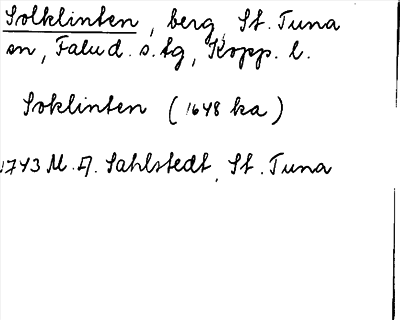 Solklinten, berg, St. Tuna
sn, Falu d. s. tg, Kopp. l.
Soklinten (1648 ka)
1743 M. A. Sahlstedt, St. Tuna